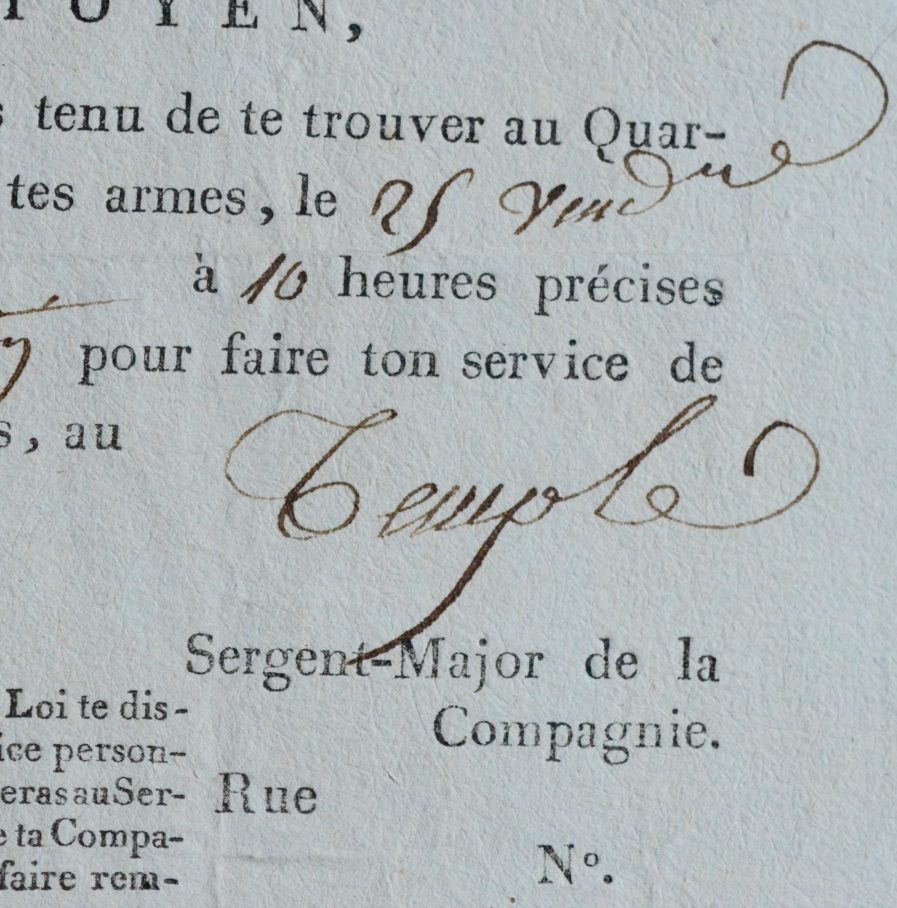 TOYEN,
s tenu de te trouver au Quar-
tes armes, le 25 Vend
à 10 heures précises
pour faire ton service de
s, au Temple
Sergent-Major de la
Compagnie.
Loi te dis-
ice person-
eras au Ser-
e ta Compa-
faire rem-
Rue
Nº.